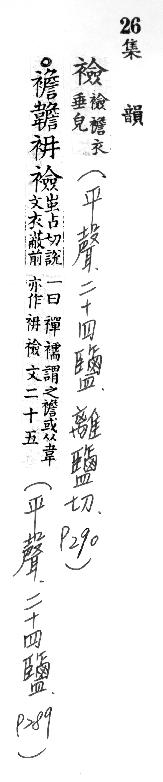 26集韻
襝襝襜衣垂皃(平聲、二十四鹽、離鹽切、P290)
。襜韂袡襝蚩占切說文衣蔽前一曰襌襦謂之襜或从韋亦作袡襝文二十五(平聲、二十四鹽、P289)